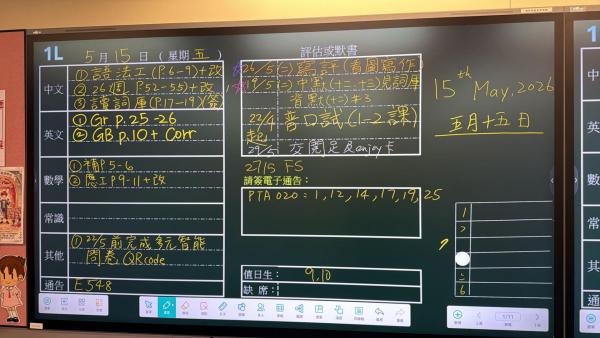 1L
5月15日(星期五)
中文
① 語法工(P.6-9)+改
② 26週(P.52-55)+改
③ 讀詞庫(P.17-19)(簽)
英文
① Gr p.25-26
② GB p.10 + Corr
數學
① 補P.5-6
② 應工P.9-11+改
常識
其他
① 22/5前完成多元智能
問卷 QRcode
通告
E548
評估或默書
26/5(二)寫評(看圖寫作)
19/5(二)中默(十二、十三)見詞庫
背默(十二)#3
23/4起
普口試(1-2課)
29/5 交閱足及enjoy卡
27/5 FS
請簽電子通告:
PTA 020:1, 12, 14, 17, 19, 25
值日生:
9, 10
缺席:
15th May, 2026
五月十五日
1
2
三
6
1/11